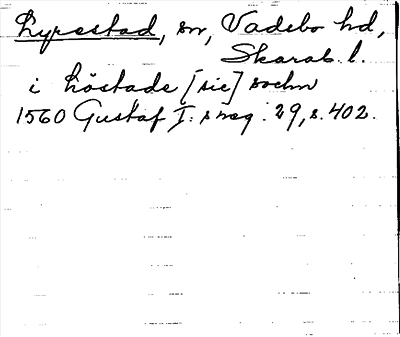 Lyrestad, sn, Vadsbo hd,
Skarab. l.
i Löstade [sic] sochn
1560 Gustaf I:s reg. 29, s. 402.